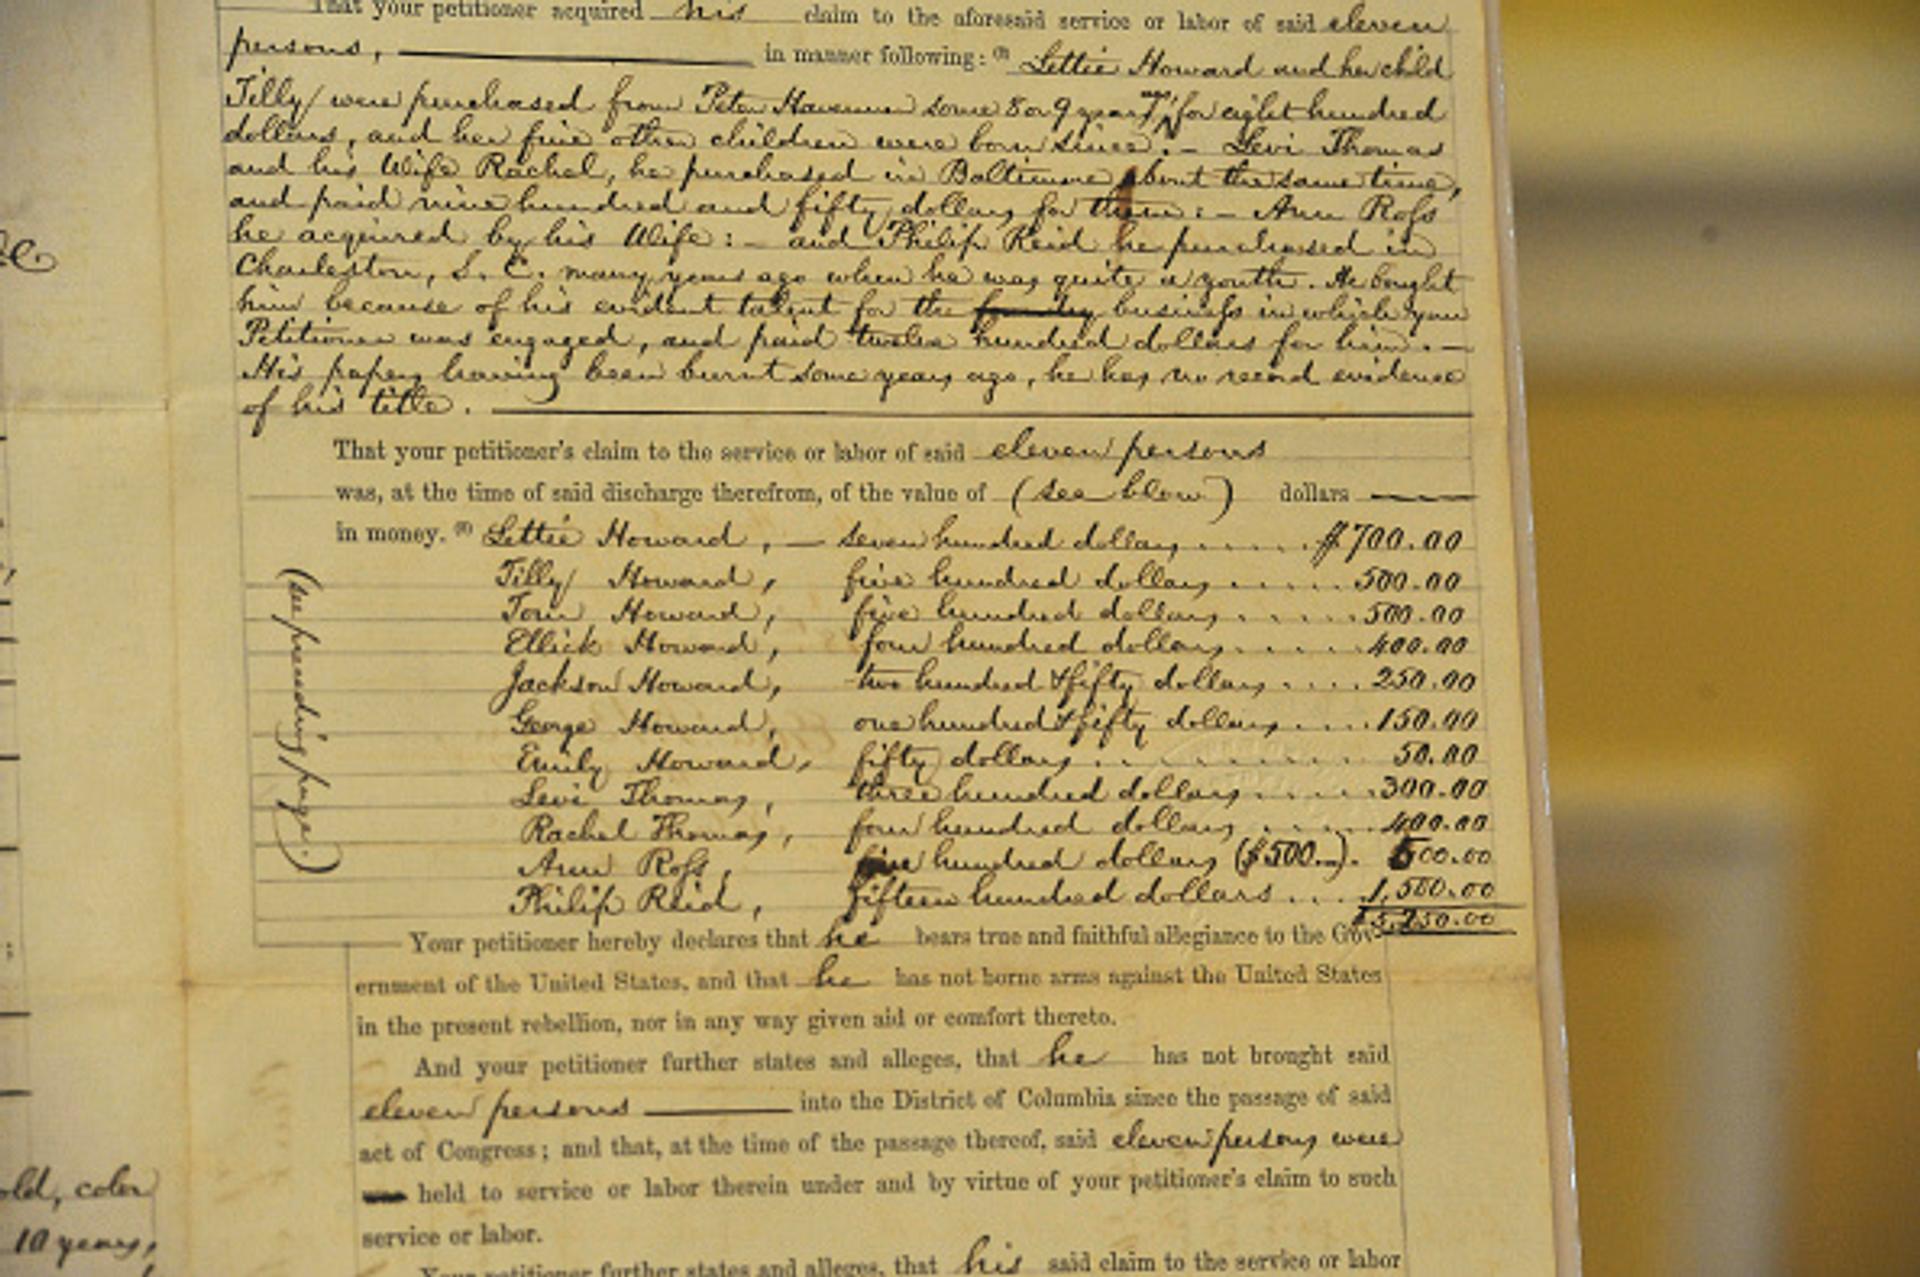 That your petitioner acquired his claim to the aforesaid service or labor of said eleven
persons, in manner following: Lettie Howard and her child
Tilly were purchased from Peter some 8 or 9 years for eight hundred
dollars, and her five other children were born since. – Levi Thomas
and his Wife Rachel, he purchased in Baltimore about the same time,
and paid nine hundred and fifty dollars for them: – Ann Ross
he acquired by his Wife: – and Philip Reid he purchased in
Charleston, S. C. many years ago when he was quite a youth. He bought
him because of his evident talent for the business in which your
Petitioner was engaged, and paid twelve hundred dollars for him. –
His papers having been burnt some years ago, he has no record evidence
of his title.
That your petitioner's claim to the service or labor of said eleven persons
was, at the time of said discharge therefrom, of the value of (see blow) dollars
in money. Lettie Howard, — seven hundred dollars, ..... $700.00
Tilly Howard, five hundred dollars ..... 500.00
Tom Howard, five hundred dollars ..... 500.00
Ellick Howard, four hundred dollars ..... 400.00
Jackson Howard, two hundred & fifty dollars .... 250.00
George Howard, one hundred & fifty dollars .... 150.00
Emily Howard, fifty dollars ........ 50.00
Levi Thomas, three hundred dollars ..... 300.00
Rachel Thomas, four hundred dollars ..... 400.00
Ann Ross, five hundred dollars ($500.–). 500.00
Philip Reid, fifteen hundred dollars ... 1,500.00
$5,250.00
(see preceding page.)
Your petitioner hereby declares that he bears true and faithful allegiance to the Gov-
ernment of the United States, and that he has not borne arms against the United States
in the present rebellion, nor in any way given aid or comfort thereto.
And your petitioner further states and alleges, that he has not brought said
eleven persons into the District of Columbia since the passage of said
act of Congress; and that, at the time of the passage thereof, said eleven persons were
held to service or labor therein under and by virtue of your petitioner's claim to such
service or labor.
Your petitioner further states and alleges, that his said claim to the service or labor
old, color
10 years,